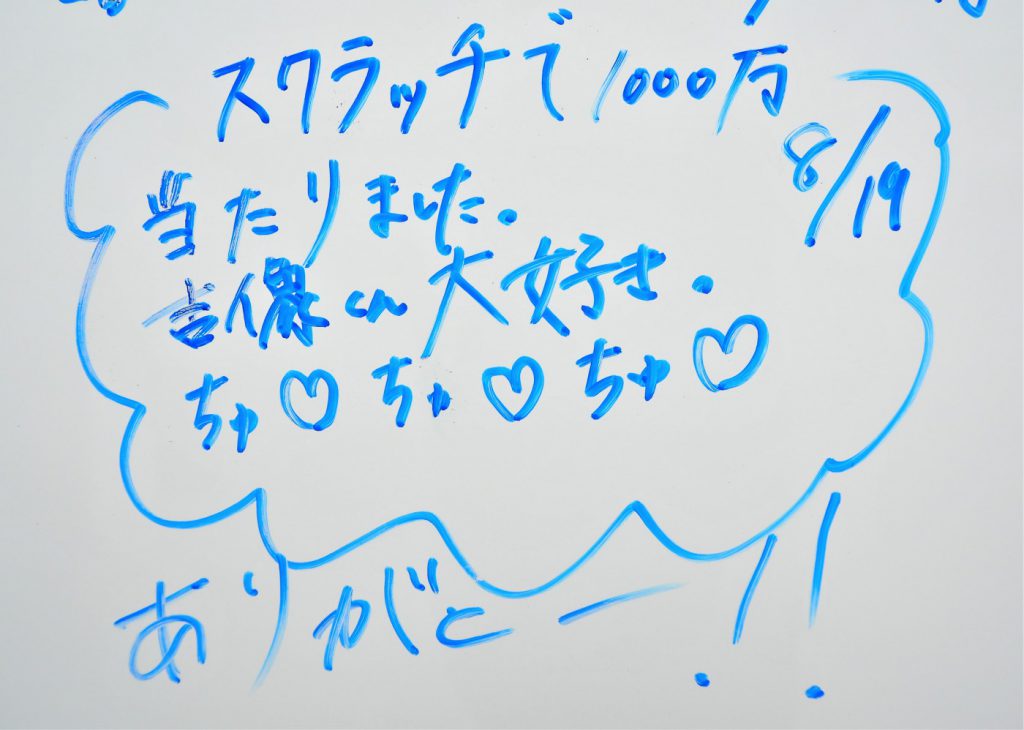 スクラッチで1000万
8/19
当たりました。
大好き.
ちゅ♡ちゅ♡ちゅ♡
ありがとー!!